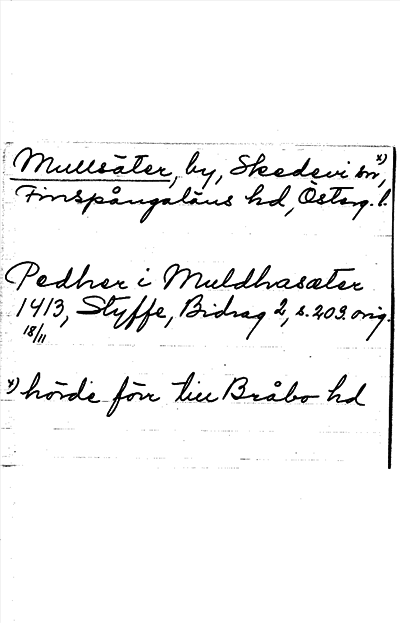 Mullsäter, by, Skedevi sn x),
Finspångaläns hd, Östsg. l.
Pedher i Muldhasæter
1413, Styffe, Bidrag 2, s. 209. orig.
18/11
x) hörde förr till Bråbo hd